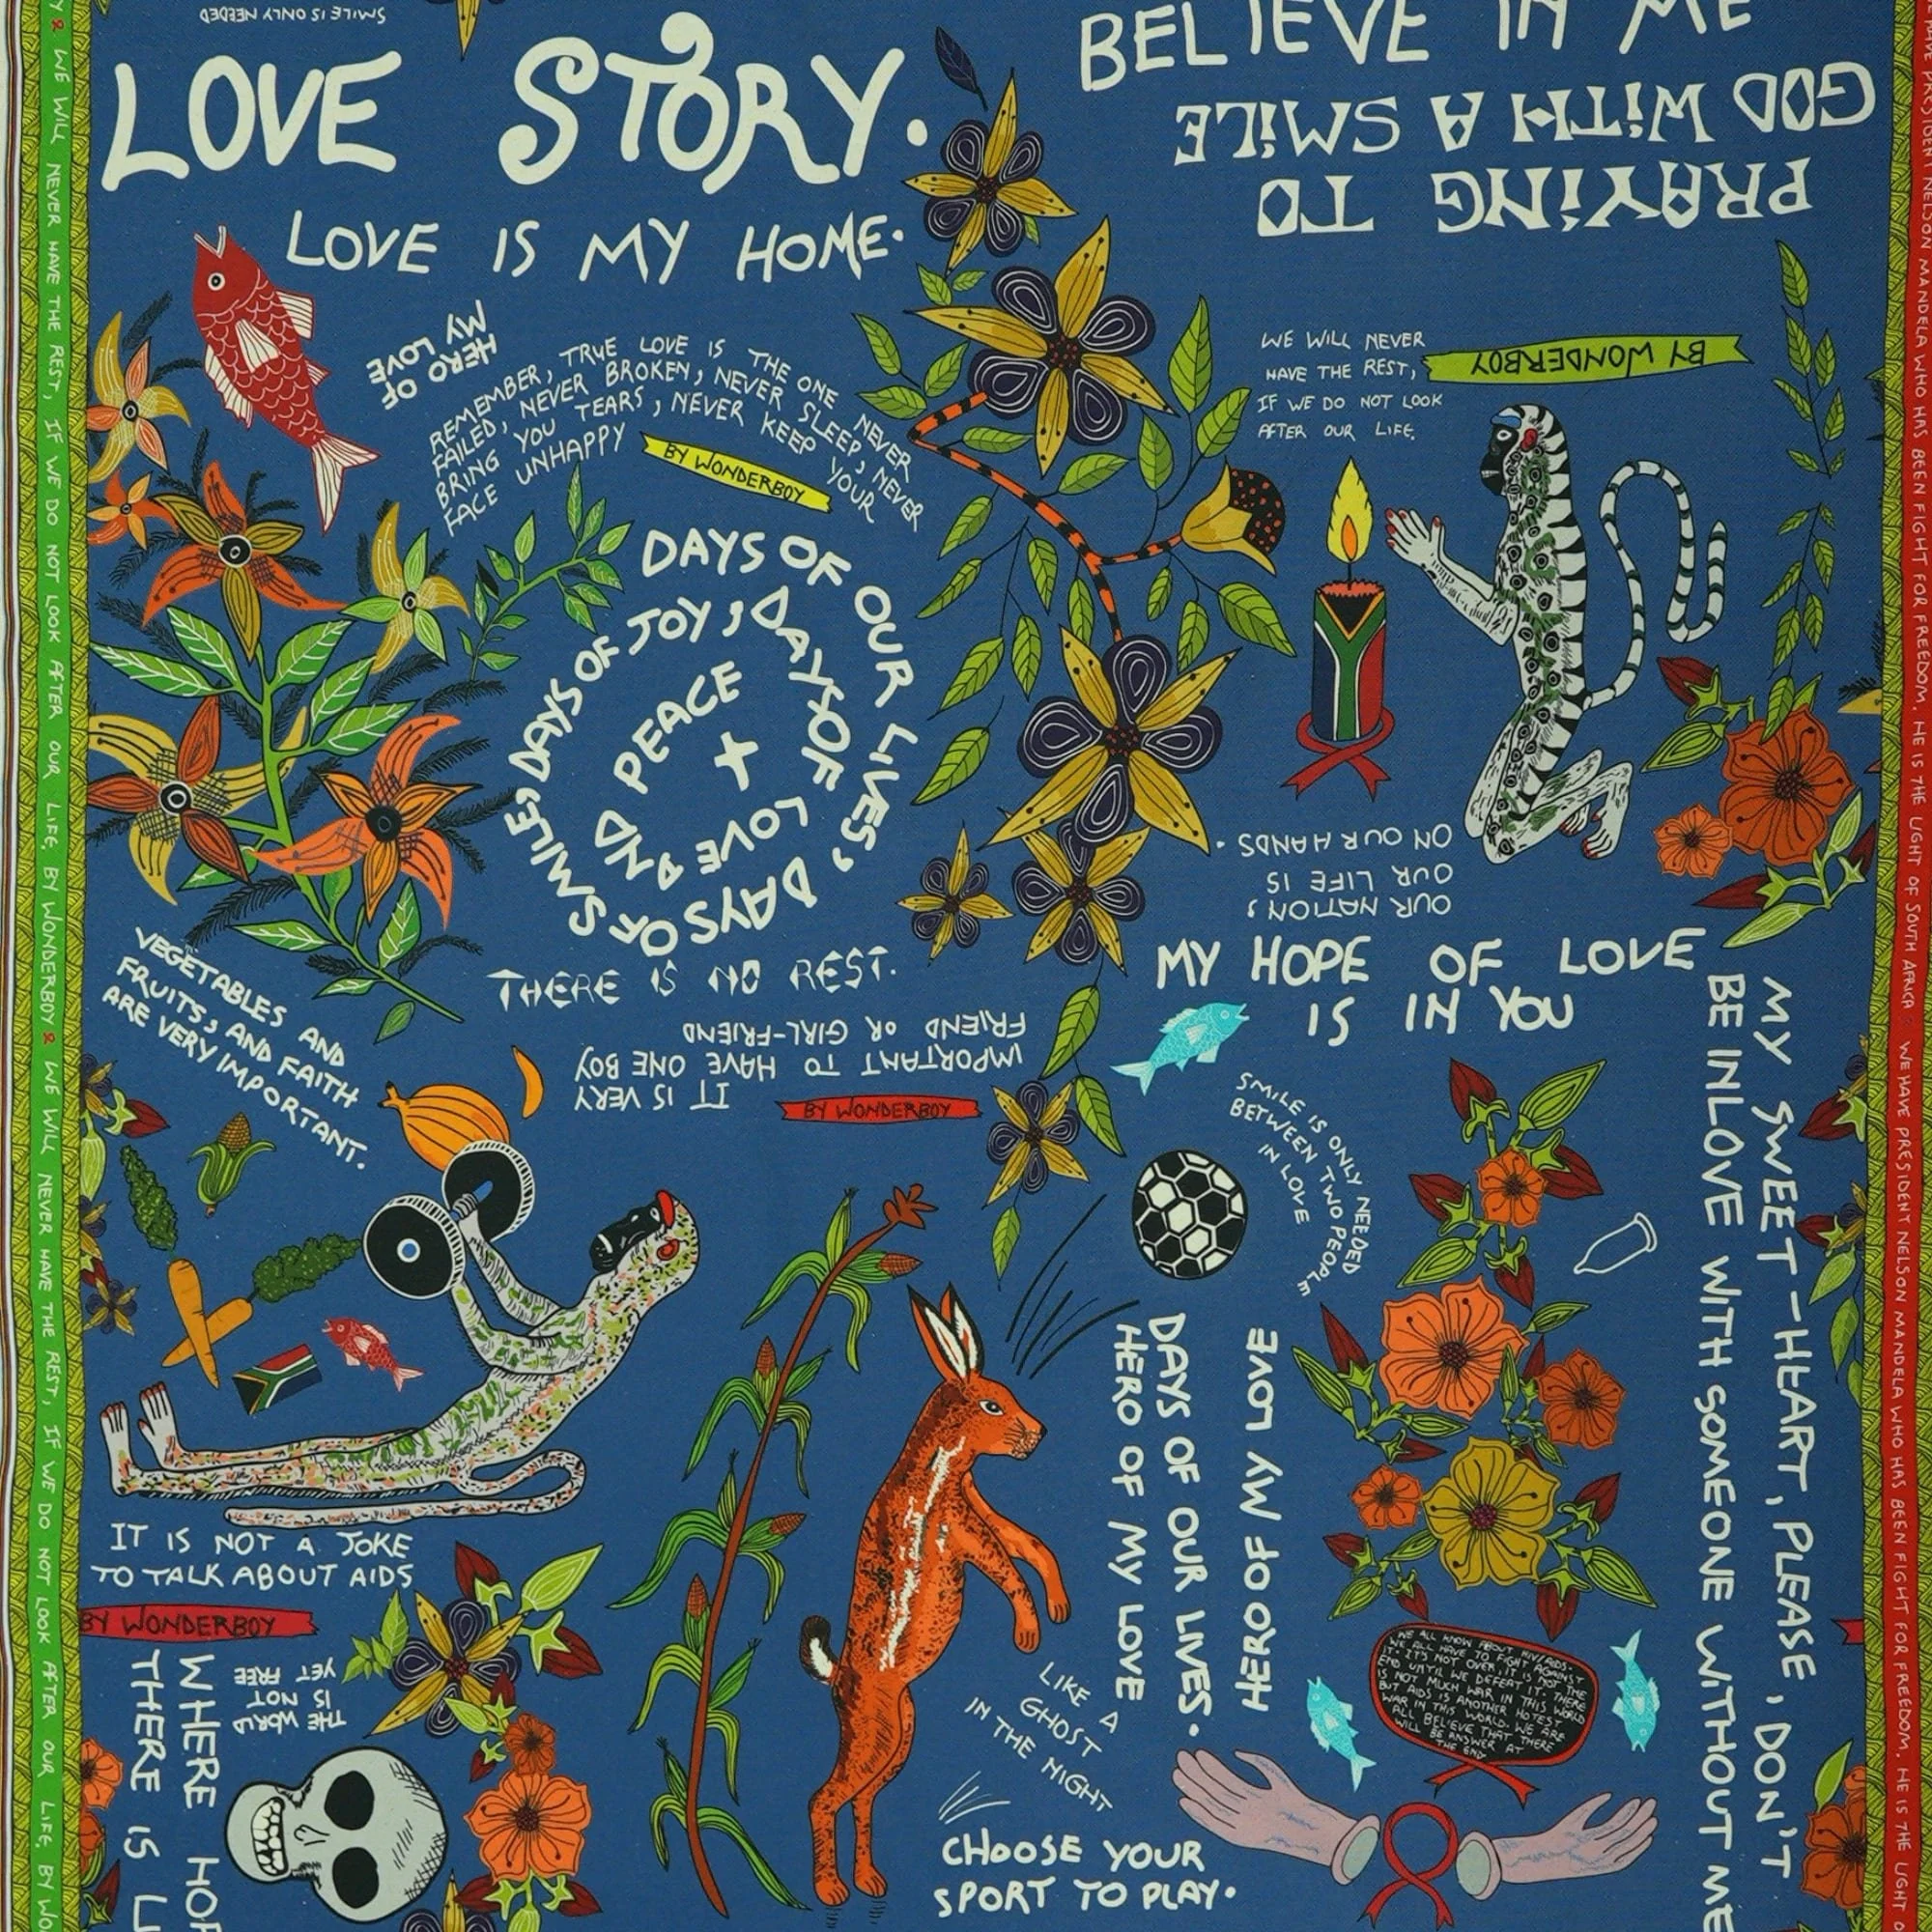 SMILE IS ONLY NEEDED
LOVE STORY.
LOVE IS MY HOME.
BELIEVE IN ME
PRAYING TO
GOD WITH A SMILE
HERO OF
MY LOVE
REMEMBER, TRUE LOVE IS THE ONE NEVER
FAILED, NEVER BROKEN, NEVER SLEEP, NEVER
BRING YOU TEARS, NEVER KEEP YOUR
FACE UNHAPPY
BY WONDERBOY
WE WILL NEVER
HAVE THE REST,
IF WE DO NOT LOOK
AFTER OUR LIFE.
BY WONDERBOY
DAYS OF OUR LIVES, DAYS OF SMILE, DAYS OF JOY, DAYS OF LOVE AND PEACE +
THERE IS NO REST.
OUR NATION,
OUR LIFE IS
ON OUR HANDS.
MY HOPE OF LOVE
IS IN YOU
VEGETABLES AND
FRUITS, AND FAITH
ARE VERY IMPORTANT.
IT IS VERY
IMPORTANT TO HAVE ONE BOY
FRIEND OR GIRL-FRIEND
BY WONDERBOY
SMILE IS ONLY NEEDED
BETWEEN TWO PEOPLE
IN LOVE
MY SWEET-HEART, PLEASE, DON'T
BE INLOVE WITH SOMEONE WITHOUT ME
DAYS OF OUR LIVES.
HERO OF MY LOVE
HERO OF MY LOVE
IT IS NOT A JOKE
TO TALK ABOUT AIDS
BY WONDERBOY
THE WORLD
IS NOT
YET FREE
WHERE
THERE IS
LIKE A
GHOST
IN THE NIGHT
CHOOSE YOUR
SPORT TO PLAY.
WE ALL KNOW ABOUT HIV/AIDS.
WE ALL HAVE TO FIGHT AGAINST
IT. IT'S NOT OVER, IT IS NOT THE
END UNTIL WE DEFEAT IT. THERE
IS NOT MUCH WAR IN THIS WORLD
BUT AIDS IS ANOTHER HOTEST
WAR IN THIS WORLD. WE ARE
ALL BELIEVE THAT THERE
WILL BE ANSWER AT
THE END
WE WILL NEVER HAVE THE REST, IF WE DO NOT LOOK AFTER OUR LIFE. BY WONDERBOY & WE WILL NEVER HAVE THE REST, IF WE DO NOT LOOK AFTER OUR LIFE. BY
NELSON MANDELA WHO HAS BEEN FIGHT FOR FREEDOM. HE IS THE LIGHT OF SOUTH AFRICA. WE HAVE PRESIDENT NELSON MANDELA WHO HAS BEEN FIGHT FOR FREEDOM. HE IS THE LIGHT